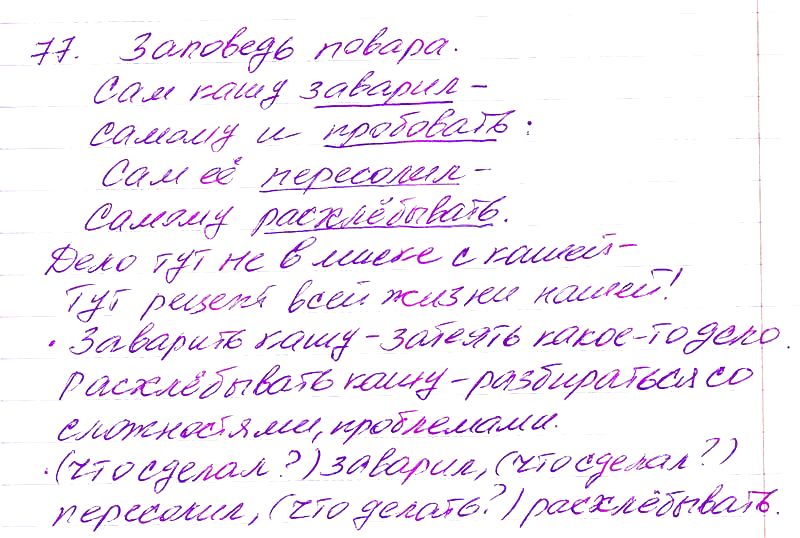 77. Заповедь повара.
Сам кашу заварил –
самому и пробовать:
Сам её пересолил –
Самому расхлёбывать.
Дело тут не в миске с кашей –
Тут рецепт всей жизни нашей!
• Заварить кашу – затеять какое-то дело.
Расхлёбывать кашу – разбираться со
сложностями, проблемами.
• (что сделал?) заварил, (что сделал?)
пересолил, (что делать?) расхлёбывать.